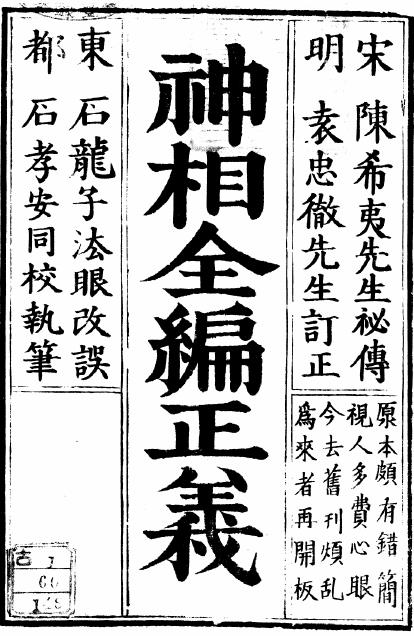 宋 陳希夷先生祕傳
明 袁忠徹先生訂正
原本頗有錯簡
視人多費心眼
今去舊刊煩乱
為來者再開板
神相全編正義
東 石龍子法眼改誤
都 石孝安同校執筆
古
1
60